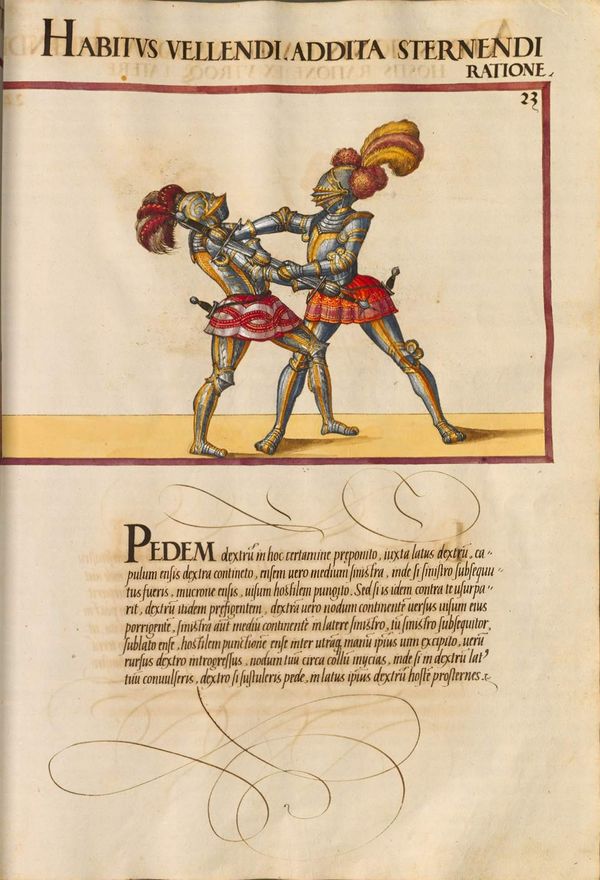 HABITVS VELLENDI. ADDITA STERNENDI
RATIONE.
23
PEDEM dextrũ in hoc certamine preponito, iuxta latus dextrũ, ca-
pulum ensis dextra contineto, ensem uero medium sinistra, inde si sinistro subsequu-
tus fueris, mucrone ensis, uisum hostilem pungito. Sed si is idem contra te usurpa-
rit, dextrũ itidem prefigentem, dextrũ uero nodum continentẽ uersus uisum eius
porrigentẽ, sinistra aũt mediũ continentẽ in latere sinistro, tu sinistro subsequitor,
sublato ense, hostilem punctionẽ ense inter utrãq. manũ ipius uim excipito, uerũ
rursus dextro introgressus, nodum tuũ circa collũ inijcias, inde si in dextrũ lat9
tuũ conuulseris, dextro si sustuleris pede, in latus ipius dextrũ hostẽ prosternes.